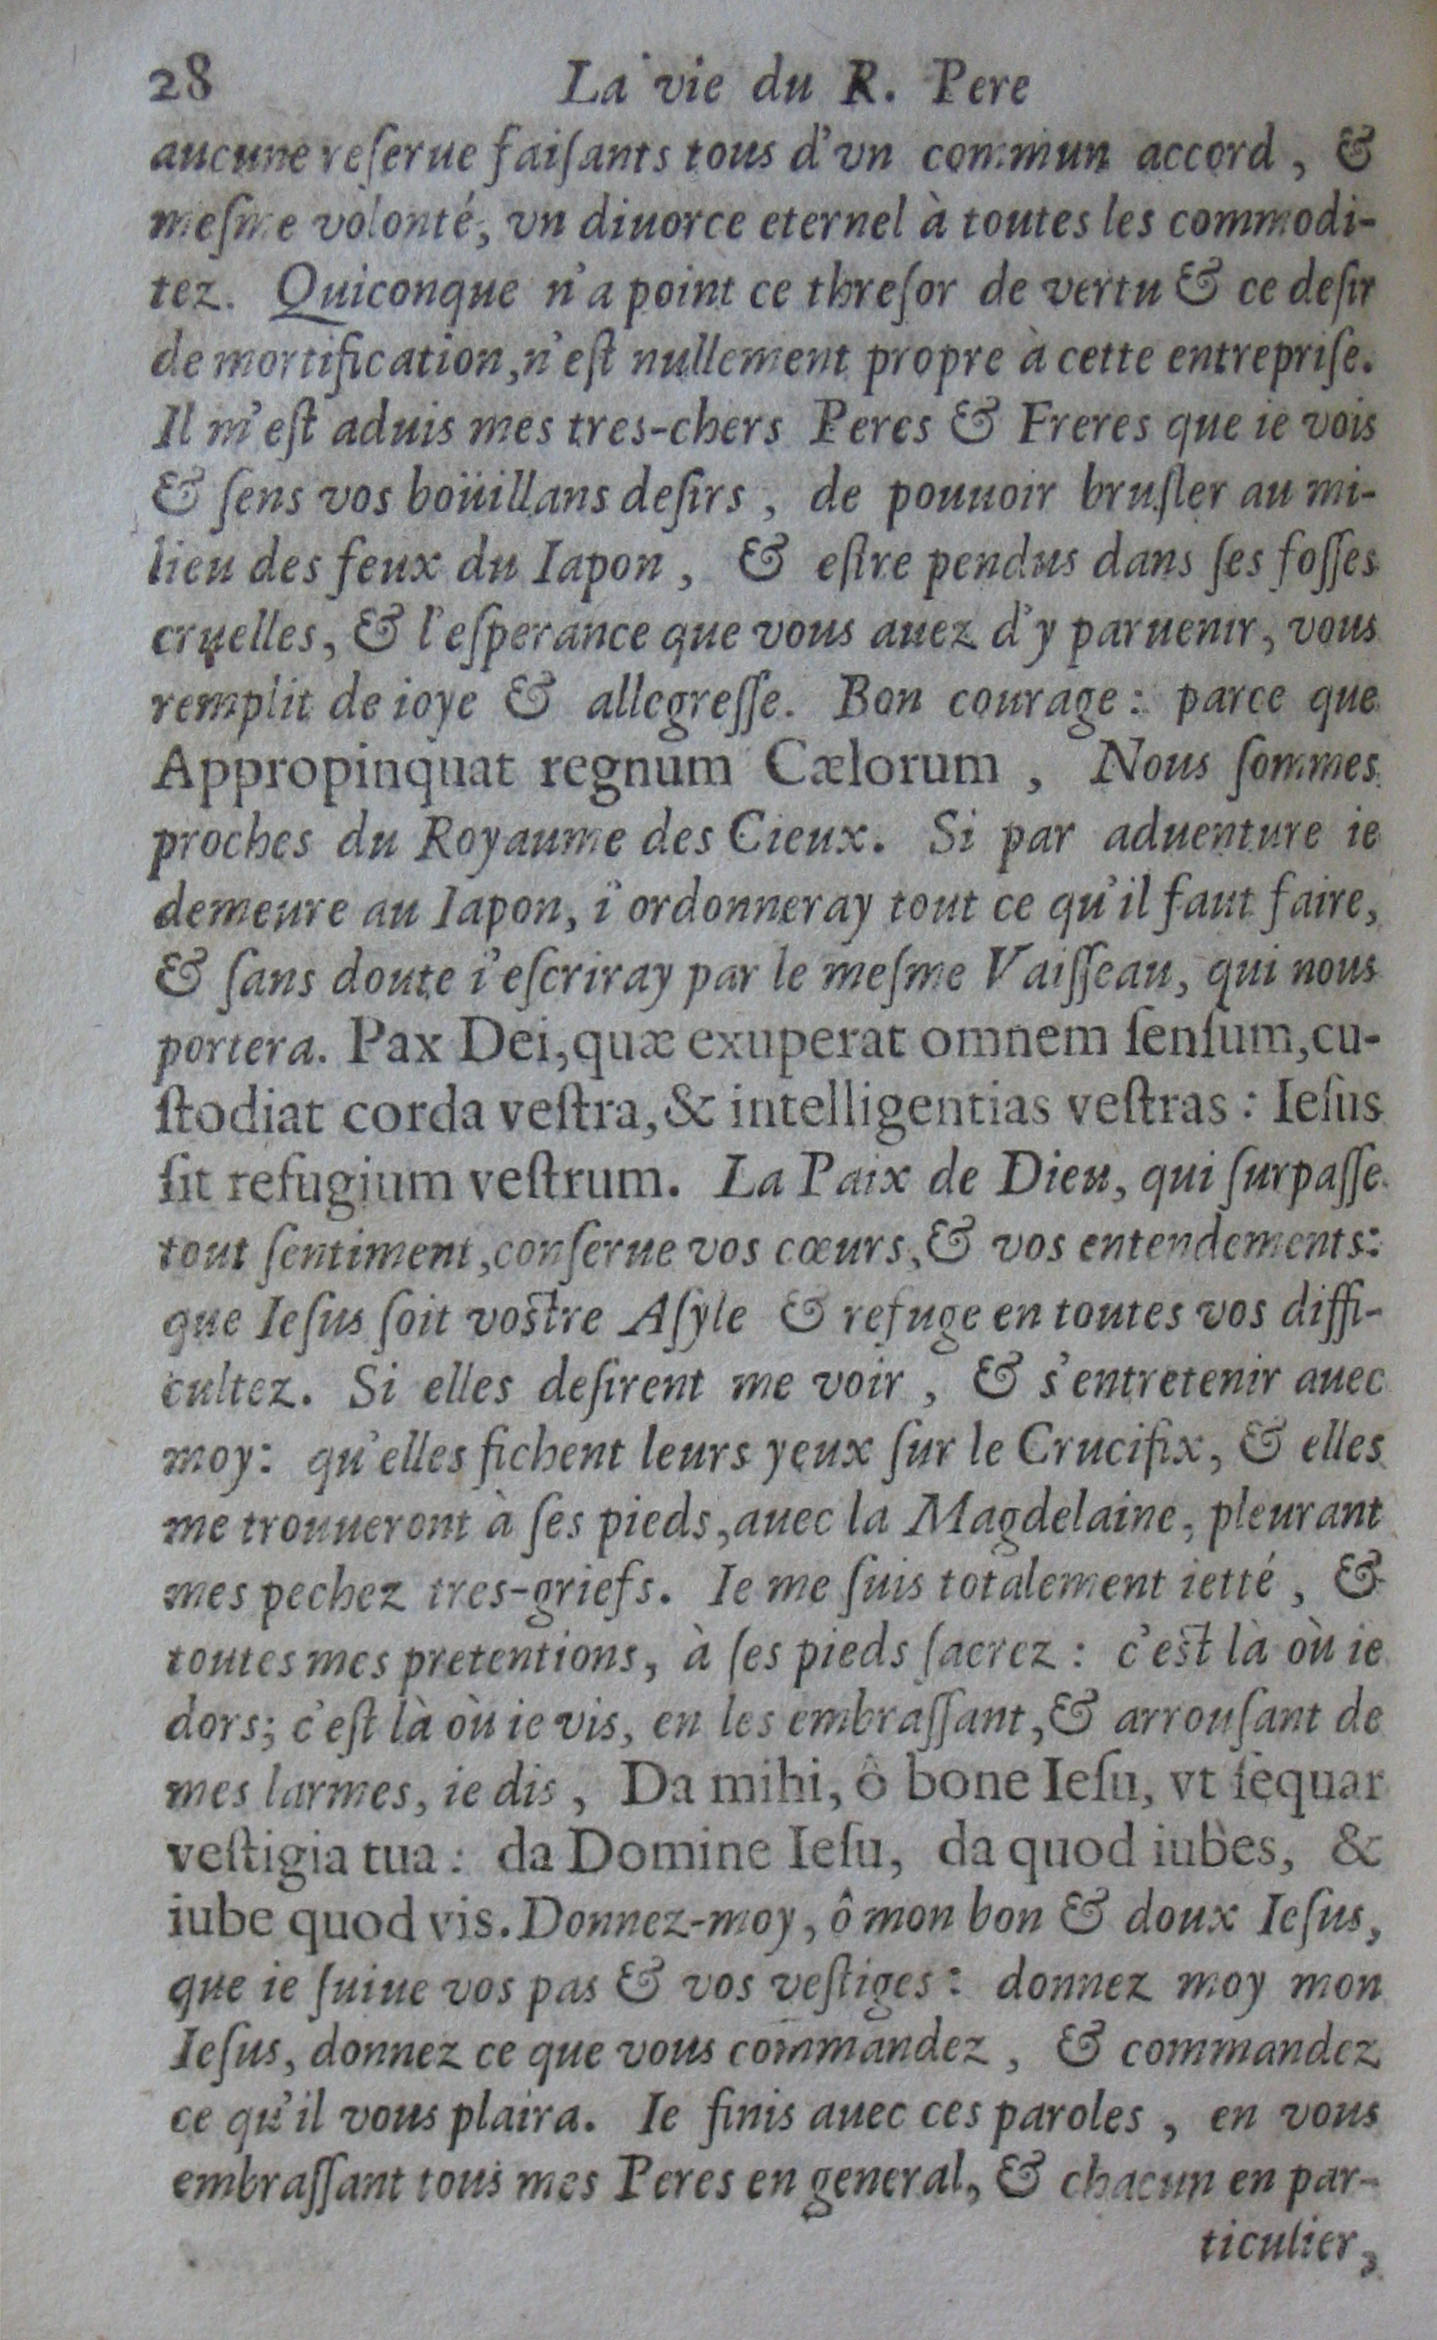 28 La vie du R. Pere
aucune reſerue faiſants tous d'vn commun accord, &
meſme volonté, vn diuorce eternel à toutes les commodi-
tez. Quiconque n'a point ce threſor de vertu & ce deſir
de mortification, n'eſt nullement propre à cette entrepriſe.
Il m'eſt aduis mes tres-chers Peres & Freres que ie vois
& ſens vos boüillans deſirs, de pouuoir bruſler au mi-
lieu des feux du Iapon, & eſtre pendus dans ſes foſſes
cruelles, & l'eſperance que vous auez d'y paruenir, vous
remplit de ioye & allegreſſe. Bon courage: parce que
Appropinquat regnum Cælorum, Nous ſommes
proches du Royaume des Cieux. Si par aduenture ie
demeure au Iapon, i'ordonneray tout ce qu'il faut faire,
& ſans doute i'eſcriray par le meſme Vaiſſeau, qui nous
portera. Pax Dei, quæ exuperat omnem ſenſum, cu-
ſtodiat corda veſtra, & intelligentias veſtras: Ieſus
ſit refugium veſtrum. La Paix de Dieu, qui ſurpaſſe
tout ſentiment, conſerue vos cœurs, & vos entendements:
que Ieſus ſoit voſtre Aſyle & refuge en toutes vos diffi-
cultez. Si elles deſirent me voir, & s'entretenir auec
moy: qu'elles fichent leurs yeux ſur le Crucifix, & elles
me trouueront à ſes pieds, auec la Magdelaine, pleurant
mes pechez tres-griefs. Ie me ſuis totalement ietté, &
toutes mes pretentions, à ſes pieds ſacrez: c'eſt là où ie
dors; c'eſt là où ie vis, en les embraſſant, & arrouſant de
mes larmes, ie dis, Da mihi, ô bone Ieſu, vt ſequar
veſtigia tua: da Domine Ieſu, da quod iubes, &
iube quod vis. Donnez-moy, ô mon bon & doux Ieſus,
que ie ſuiue vos pas & vos veſtiges: donnez moy mon
Ieſus, donnez ce que vous commandez, & commandez
ce qu'il vous plaira. Ie finis auec ces paroles, en vous
embraſſant tous mes Peres en general, & chacun en par-
ticulier,